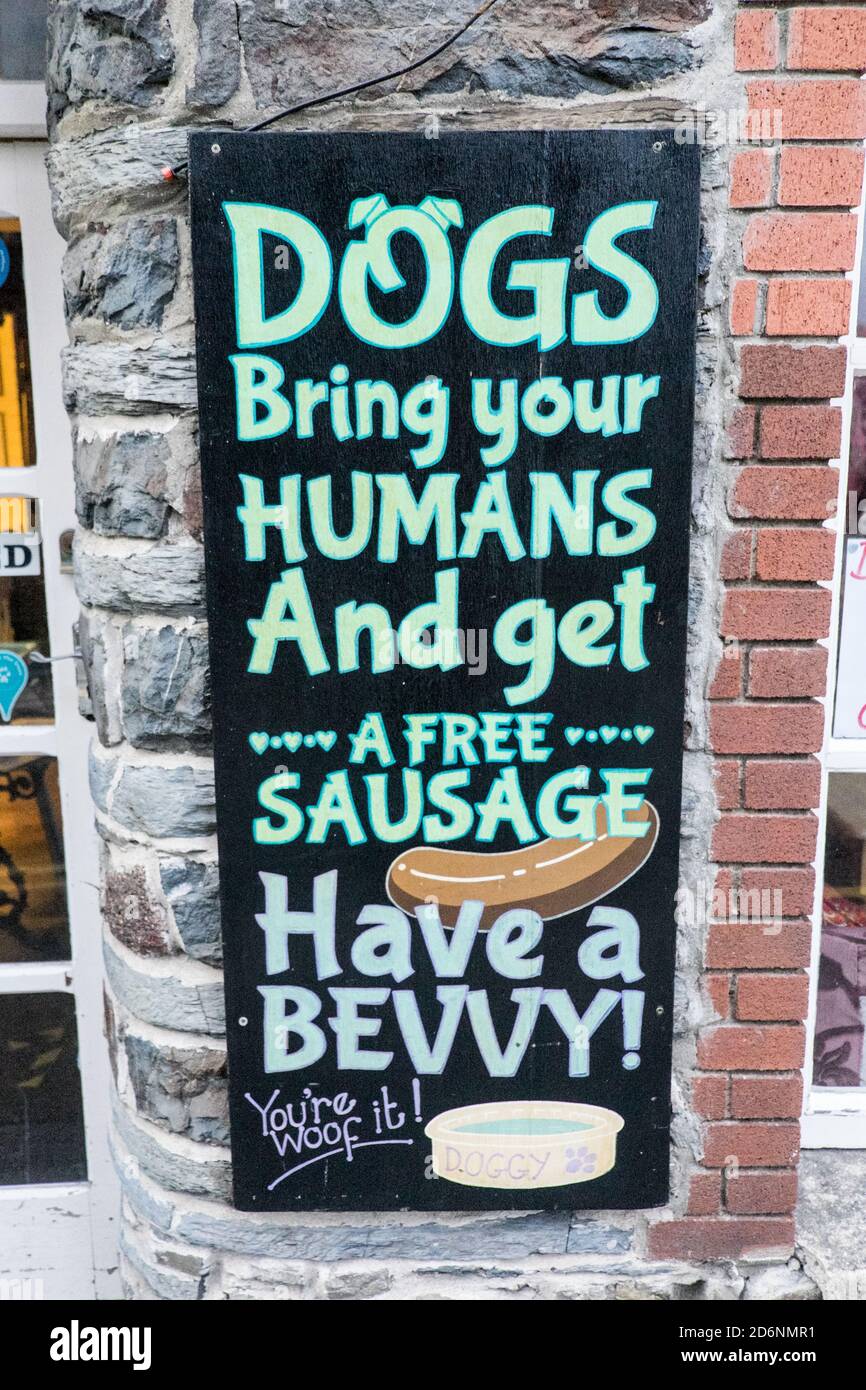 DOGS
Bring your
HUMANS
And get
A FREE
SAUSAGE
Have a
BEVVY!
You're
woof it!
DOGGY
D
alamy
Image ID: 2D6NMR1
www.alamy.com